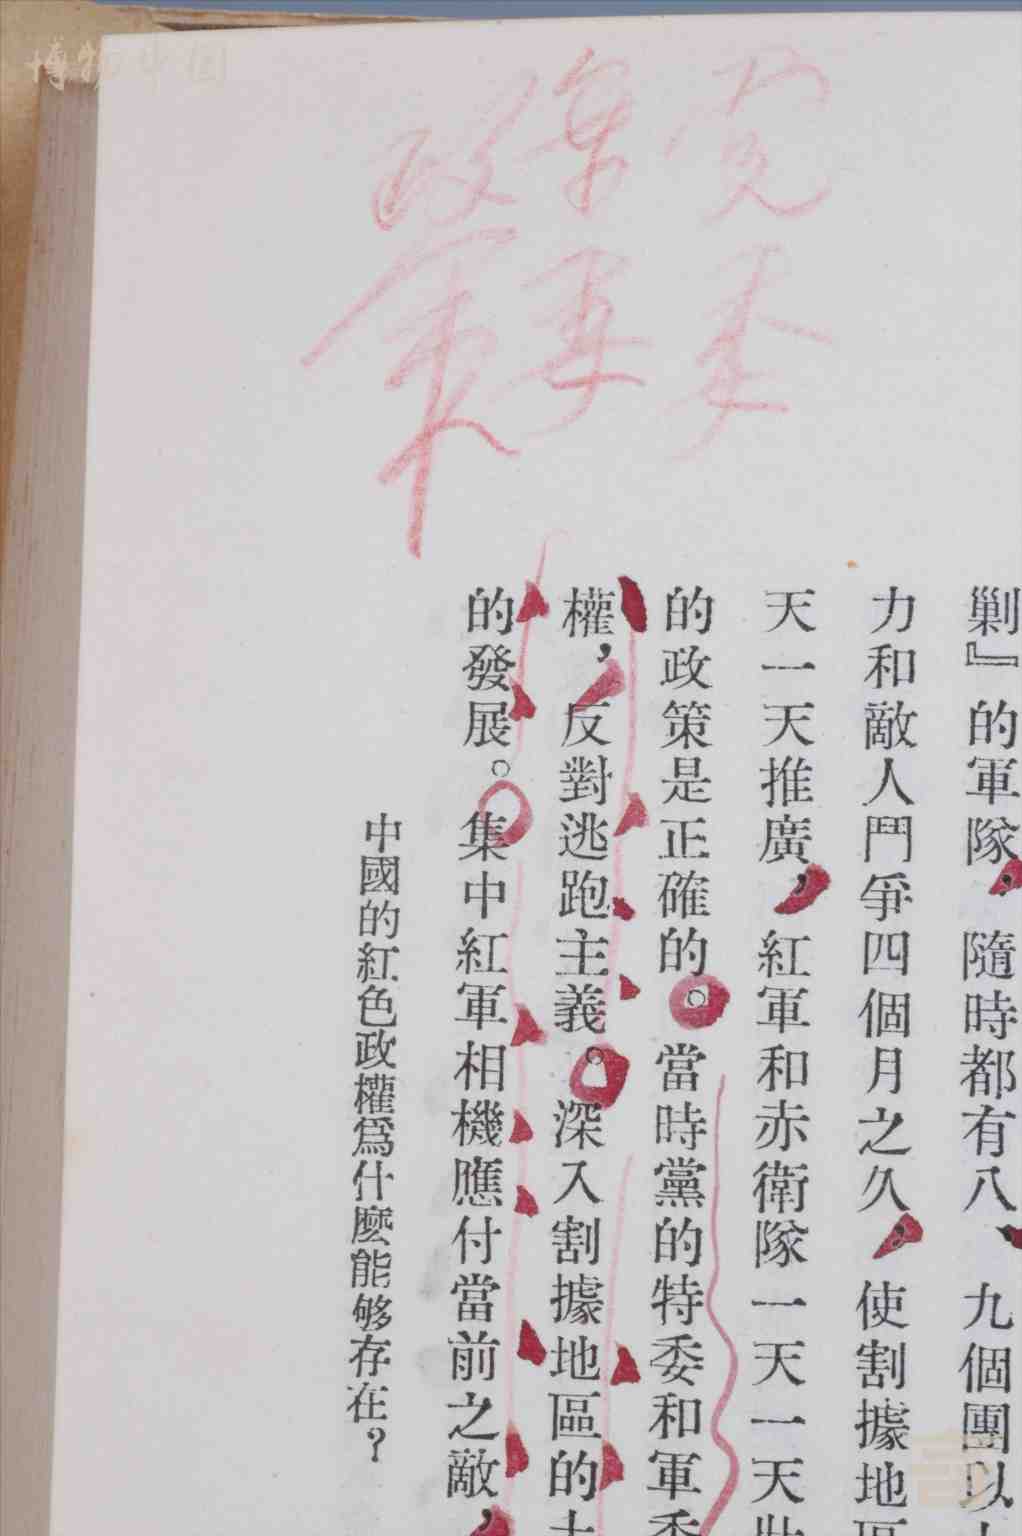 博物中国
党
军事
政
軍
剿』的軍隊，隨時都有八、九個團以
力和敵人鬥爭四個月之久，使割據地區
天一天推廣，紅軍和赤衛隊一天一天壯
的政策是正確的。當時黨的特委和軍委
權，反對逃跑主義。深入割據地區的土
的發展。集中紅軍相機應付當前之敵，
中國的紅色政權爲什麽能够存在？